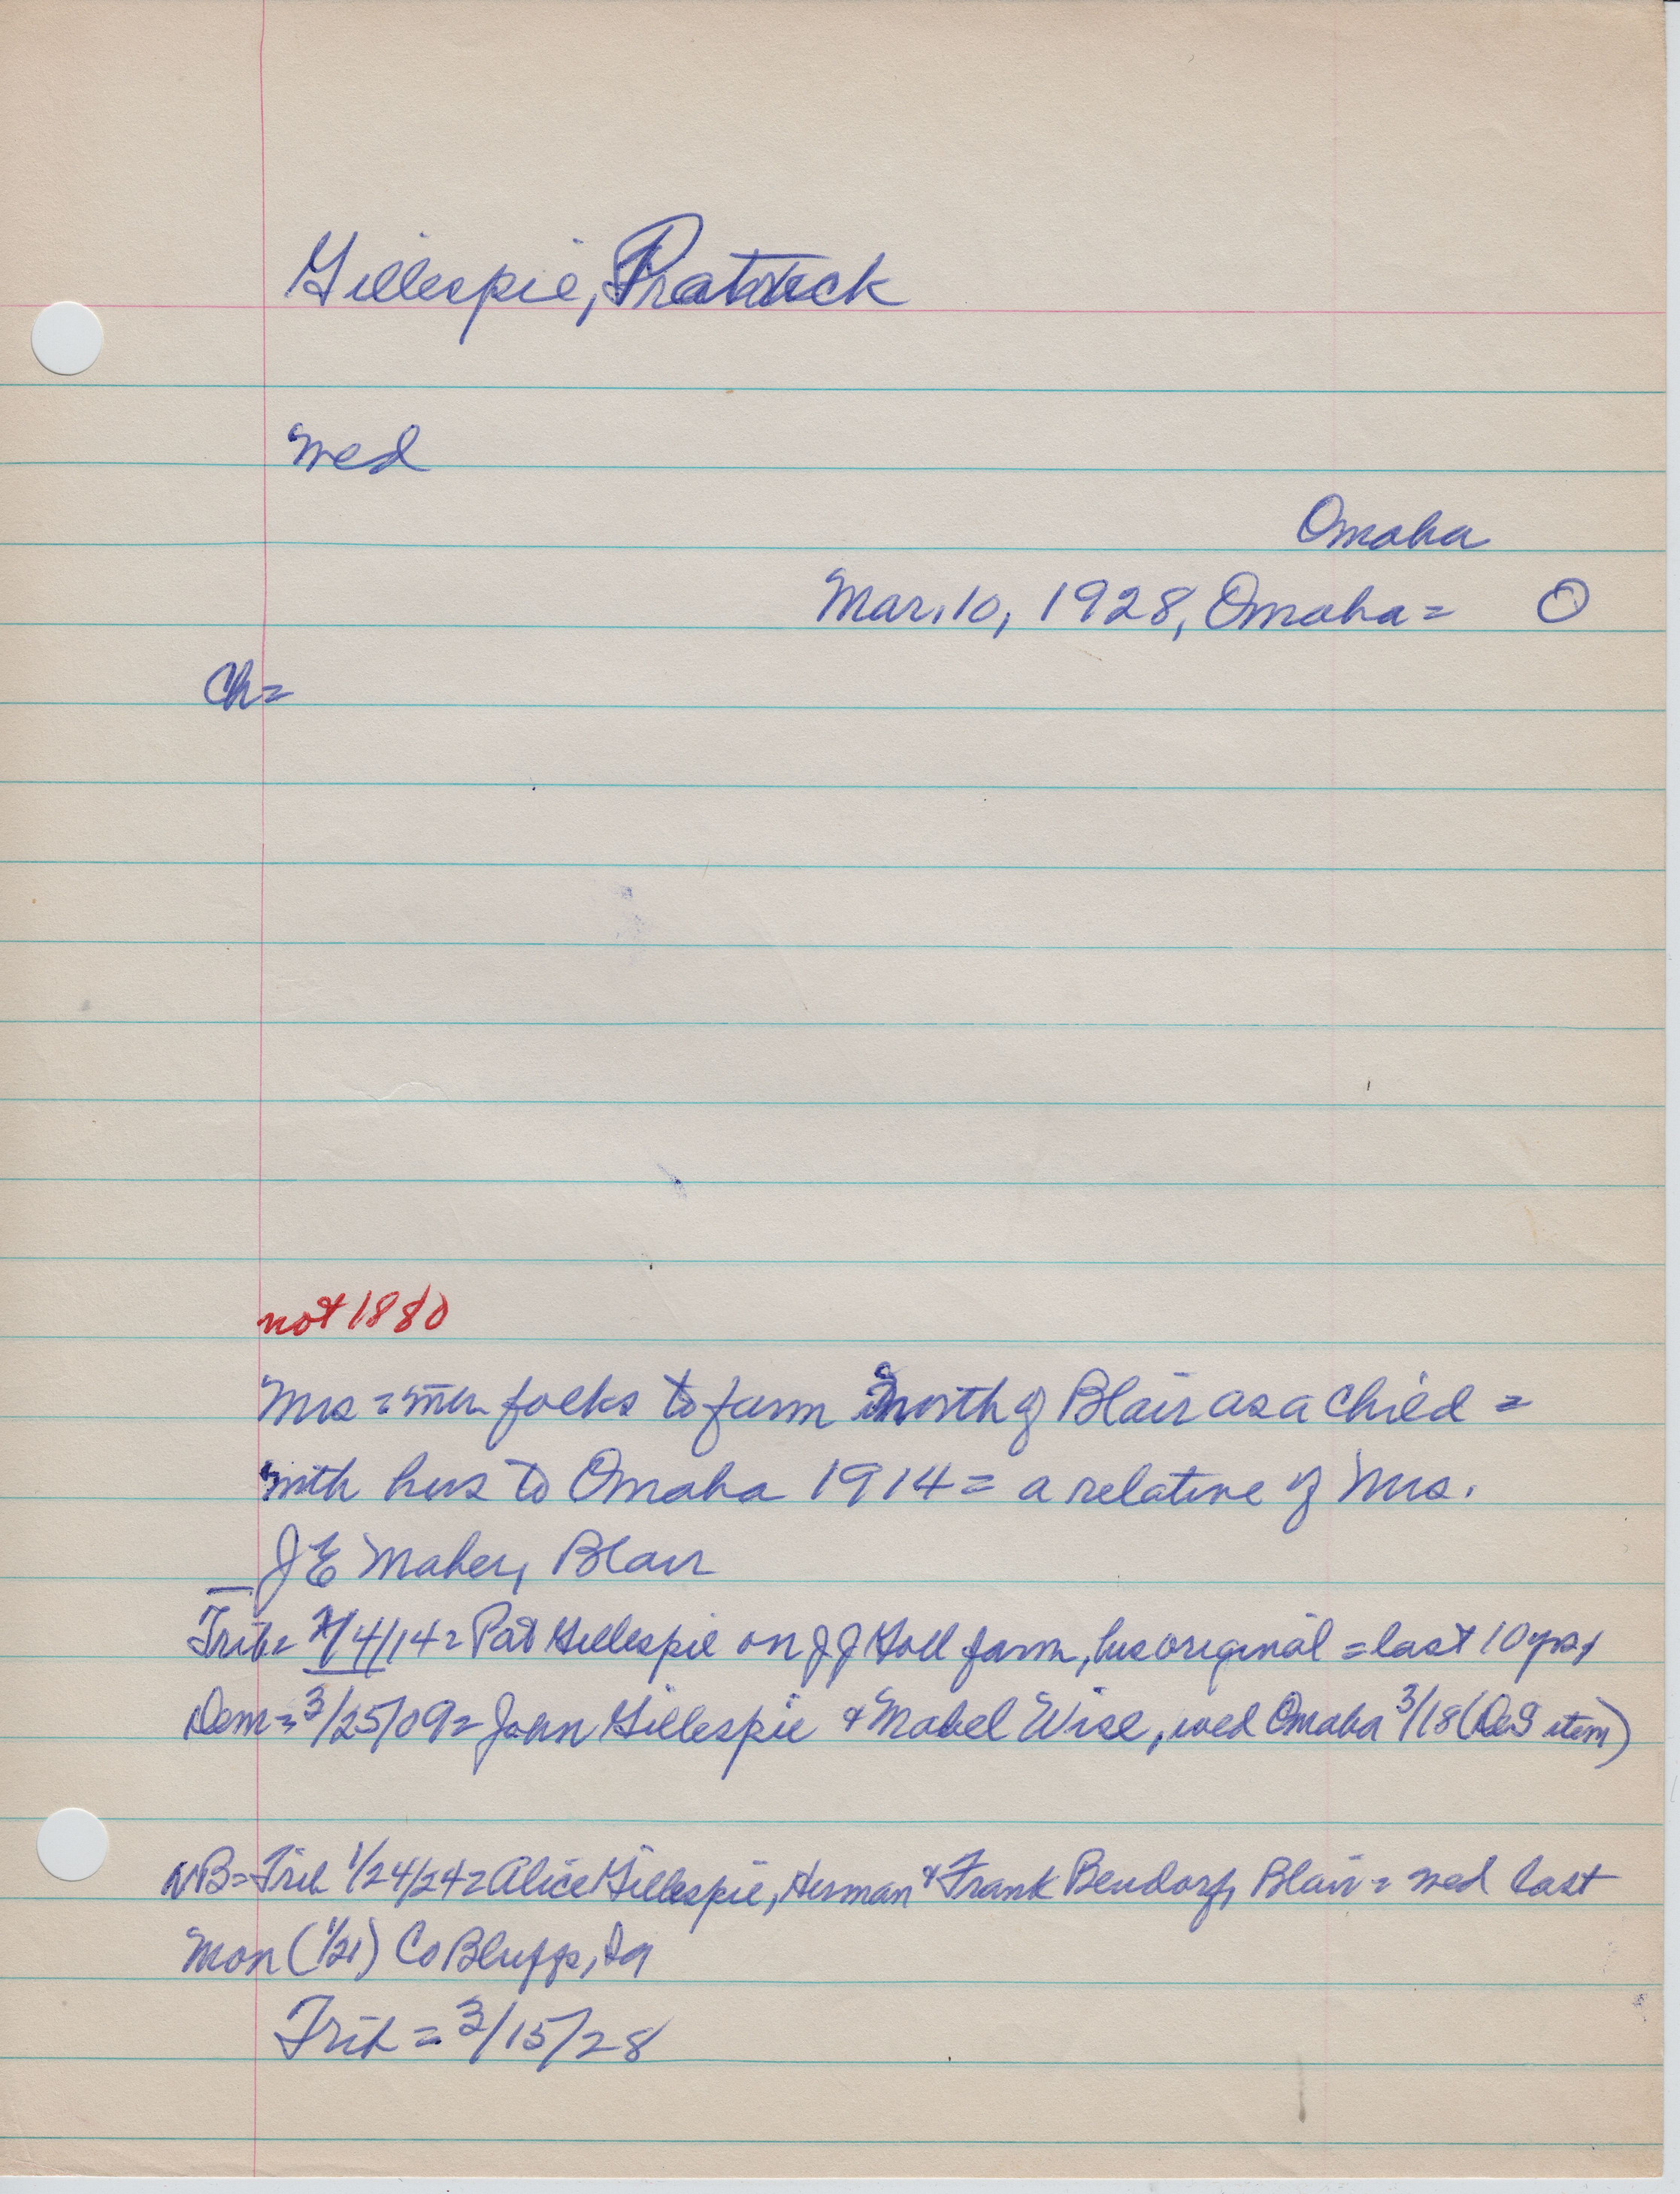 Gillespie, Patrick
wed
Omaha
Mar. 10, 1928, Omaha = O
Ch =
not 1880
Mrs = folks to farm north of Blair as a child =
with hus to Omaha 1914 = a relative of Mrs.
J E Maher, Blair
Trib = 2/4/14 = Pat Gillespie on J J farm, his original = last 10 yrs,
Dem = 3/25/09 = John Gillespie & Mabel Wise, wed Omaha 3/18 ( item)
NB = Trib 1/24/24 = Alice Gillespie, Herman & Frank Bendorf, Blair = wed last
Mon (1/21) Co Bluffs, Ia
Trib = 3/15/28